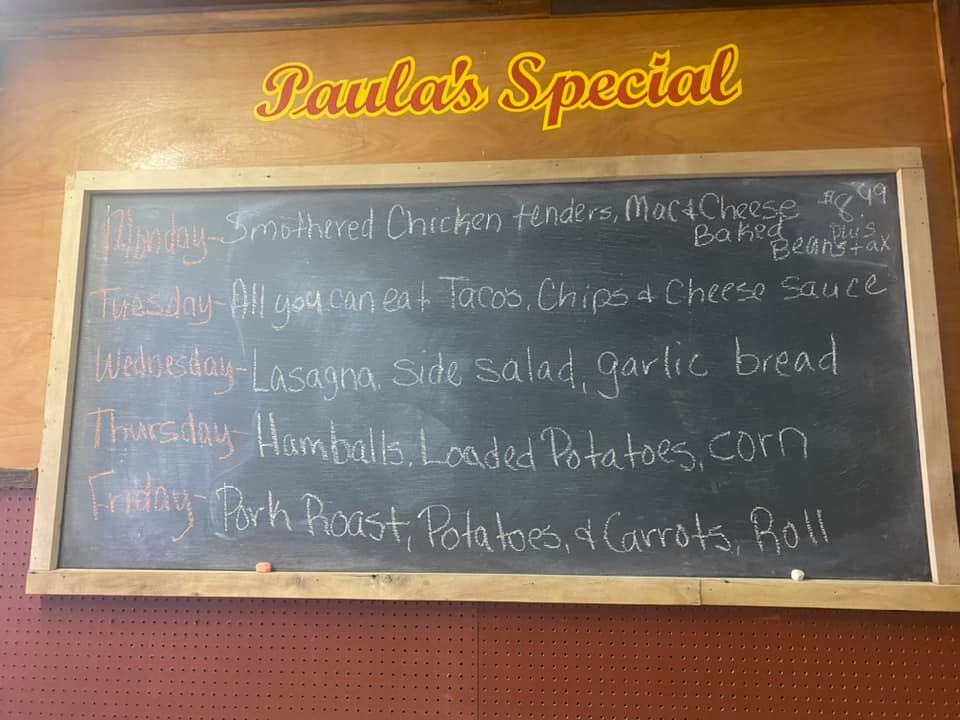 Paula's Special
Monday- Smothered Chicken tenders, Mac & Cheese $8.99
Baked plus
Beans tax
Tuesday- All you can eat Tacos, Chips & Cheese Sauce
Wednesday- Lasagna, side salad, garlic bread
Thursday- Hamballs, Loaded Potatoes, corn
Friday- Pork Roast, Potatoes, & Carrots, Roll